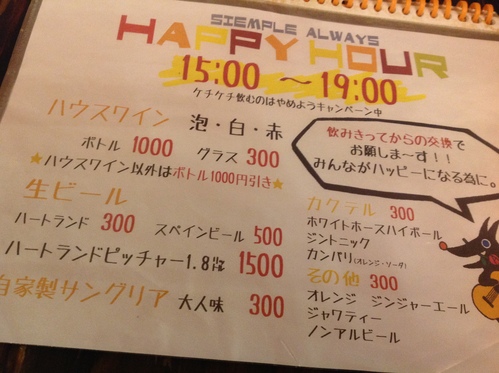 SIEMPLE ALWAYS
HAPPY HOUR
15:00 〜19:00
ケチケチ飲むのはやめようキャンペーン中
ハウスワイン 泡・白・赤
ボトル 1000 グラス 300
★ハウスワイン以外はボトル1000円引き★
生ビール
ハートランド 300 スペインビール 500
ハートランドピッチャー1.8㍑ 1500
自家製サングリア 大人味 300
飲みきってからの交換で
お願しま〜す!!
みんながハッピーになる為に。
カクテル 300
ホワイトホースハイボール
ジントニック
カンパリ(オレンジ・ソーダ)
その他 300
オレンジ ジンジャーエール
ジャワティー
ノンアルビール